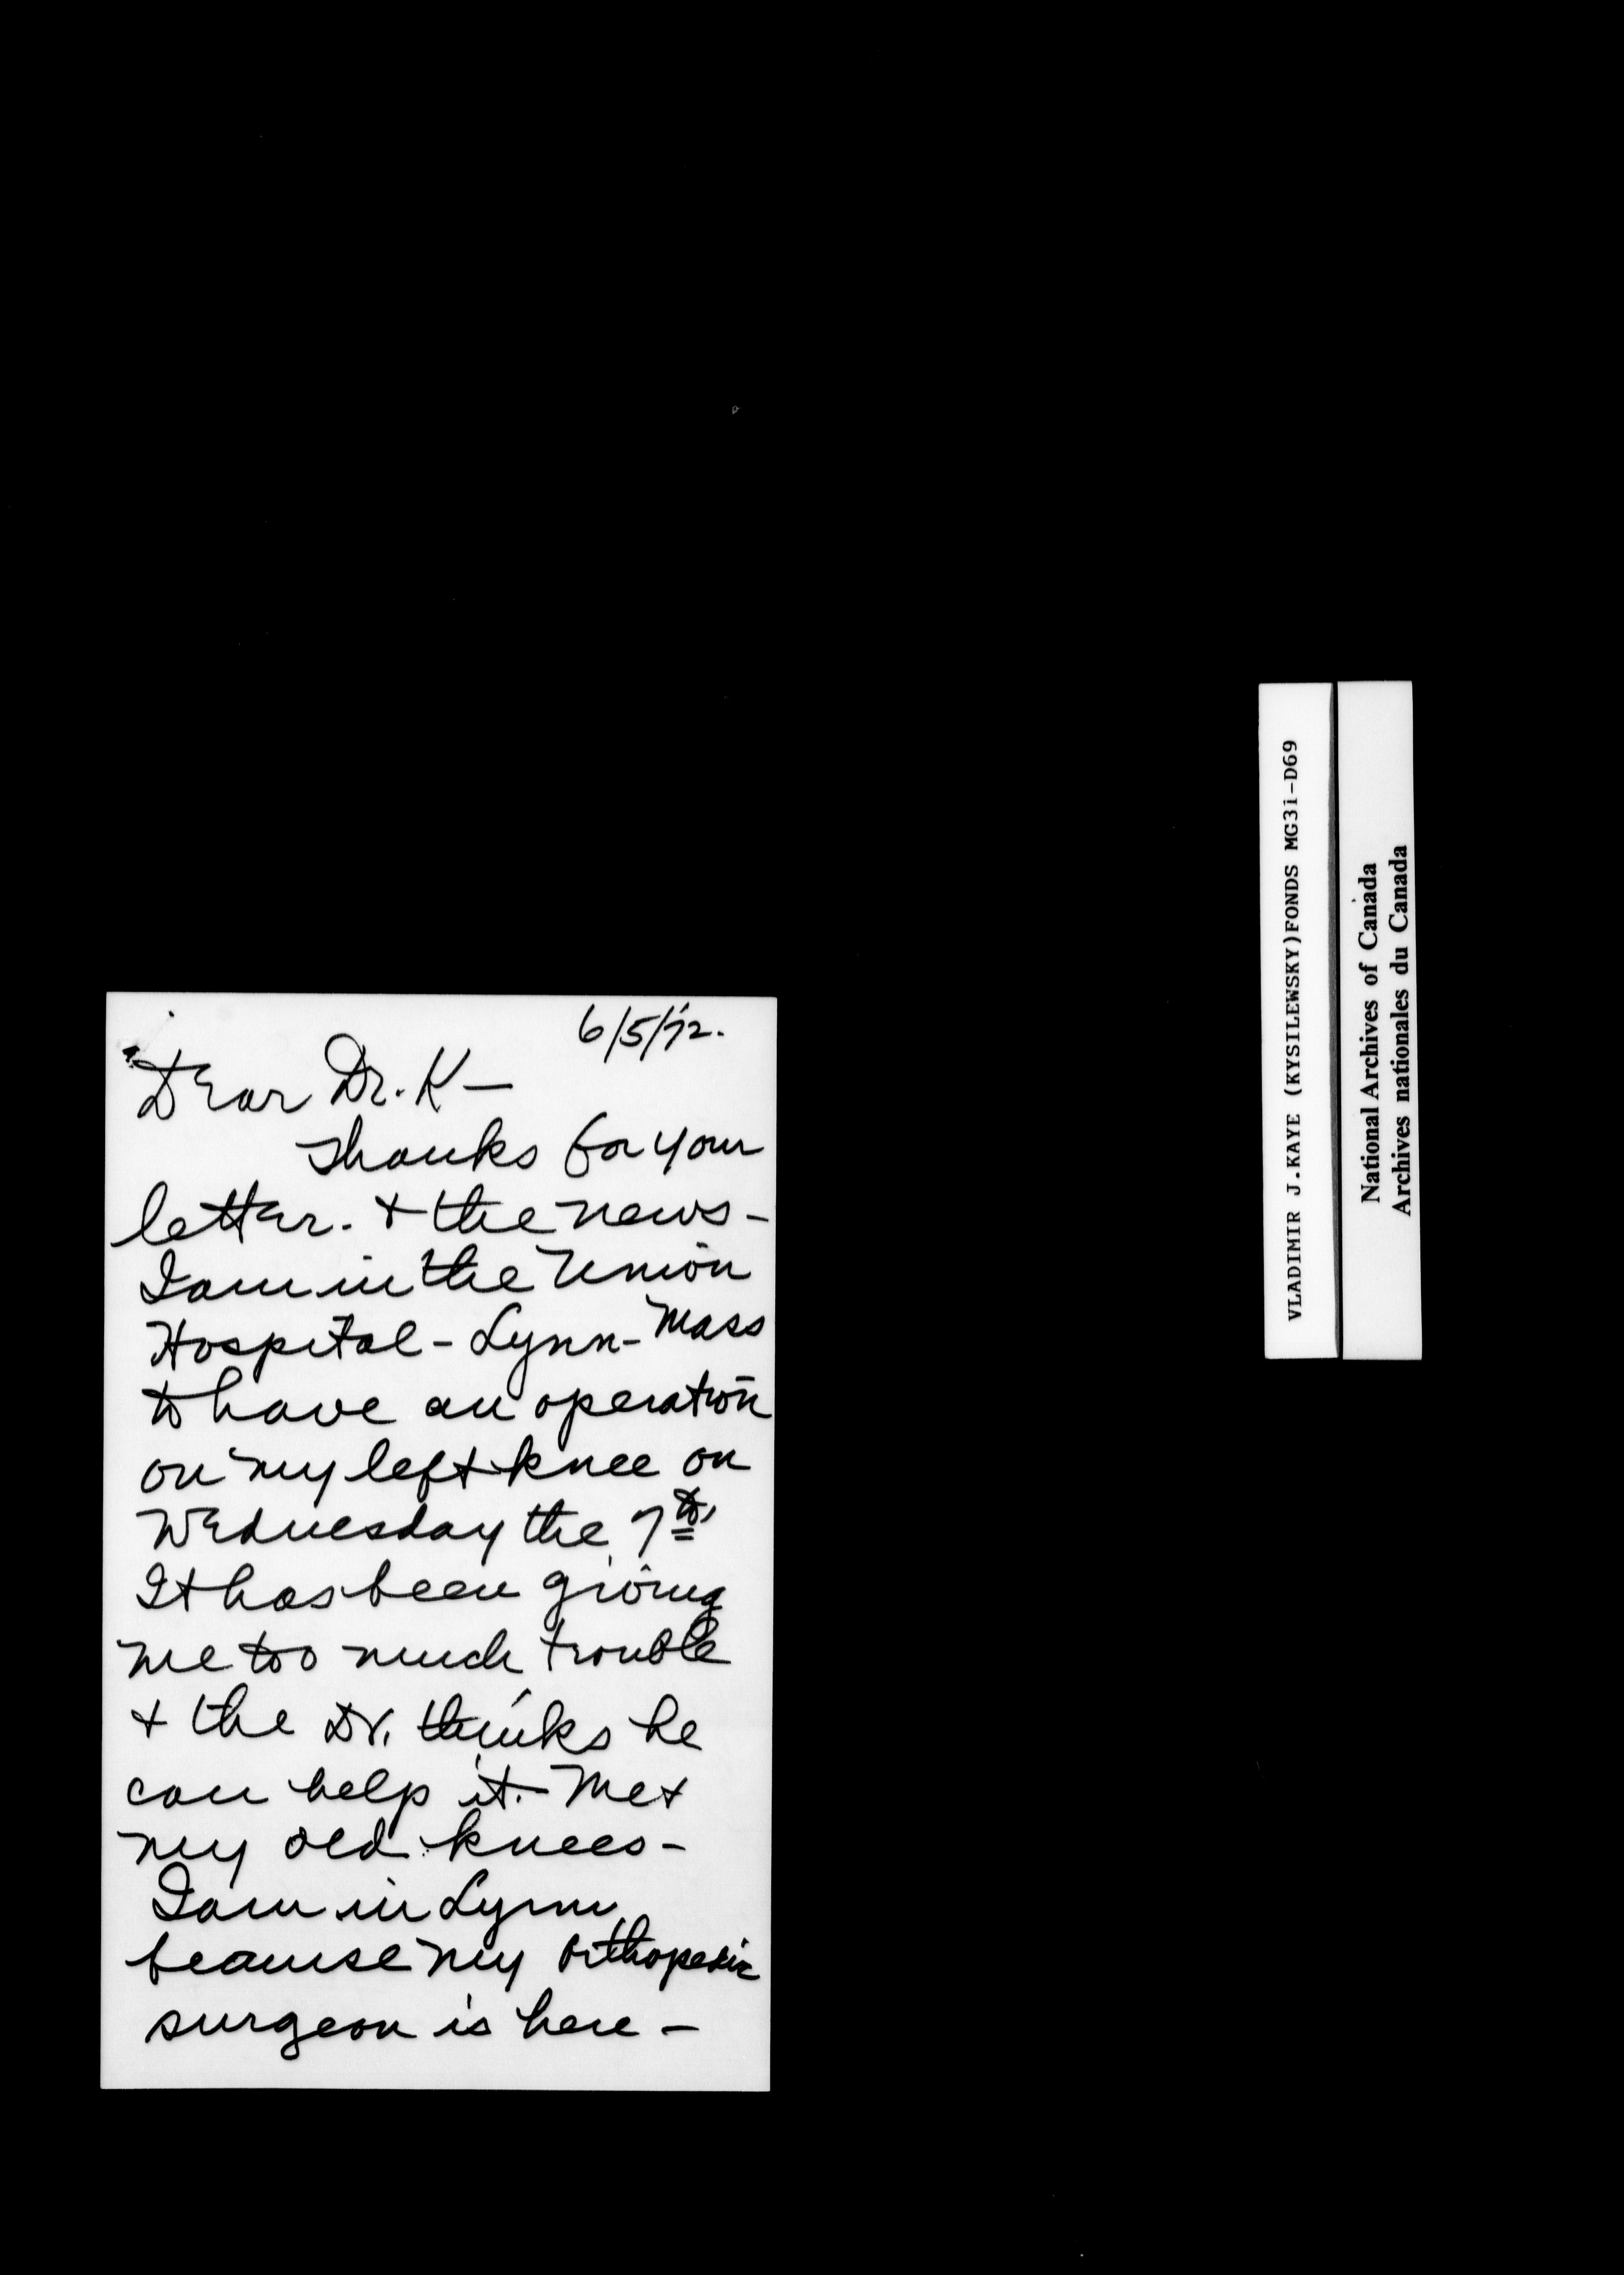 6/5/72.
Dear Dr. K—
Thanks for your
letter. & the news-
I am in the Union
Hospital - Lynn - Mass
to have an operation
on my left knee on
Wednesday the 7th
It has been giving
me too much trouble
& the Dr. thinks he
can help it. - Me &
my old knees -
I am in Lynn
because my orthopedic
surgeon is here -
VLADIMIR J.KAYE (KYSILEWSKY)FONDS MG31-D69
National Archives of Canada
Archives nationales du Canada